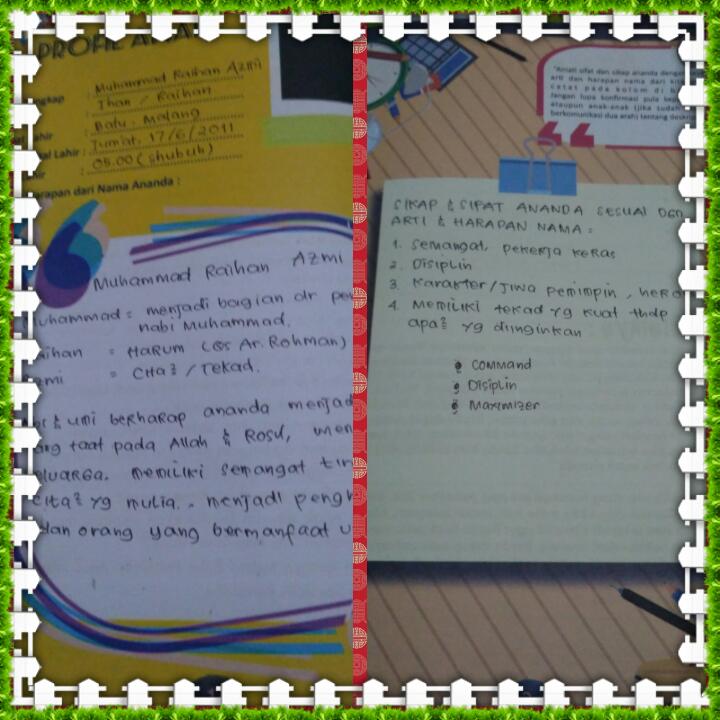 PROFIL
: Muhammad Raihan Azmi
: Ihan / Raihan
: Batu - Malang
Lahir : Jumat, 17/6/2011
: 05.00 (shubuh)
dari Nama Ananda :
Muhammad Raihan Azmi
= menjadi bagian dr
nabi Muhammad.
= HaRUM (QS Ar. Rohman)
= Cita2 / Tekad.
& umi berharap ananda
taat pada Allah & Rosul,
memiliki semangat
cita2 yg mulia.. menjadi
dan orang yang bermanfaat
"Amati sifat dan sikap ananda
arti dan harapan nama dari
catat pada kolom di
Jangan lupa konfirmasi pula
ataupun anak-anak (jika sudah
berkomunikasi dua arah) tentang
SIKAP & SIFAT ANANDA SESUAI DGN
ARTI & HARAPAN NAMA :
1. Semangat, pekerja keras
2. Disiplin
3. Karakter/Jiwa pemimpin,
4. Memiliki tekad yg kuat thdp
apa2 yg diinginkan
COMMAND
Disiplin
Maximizer